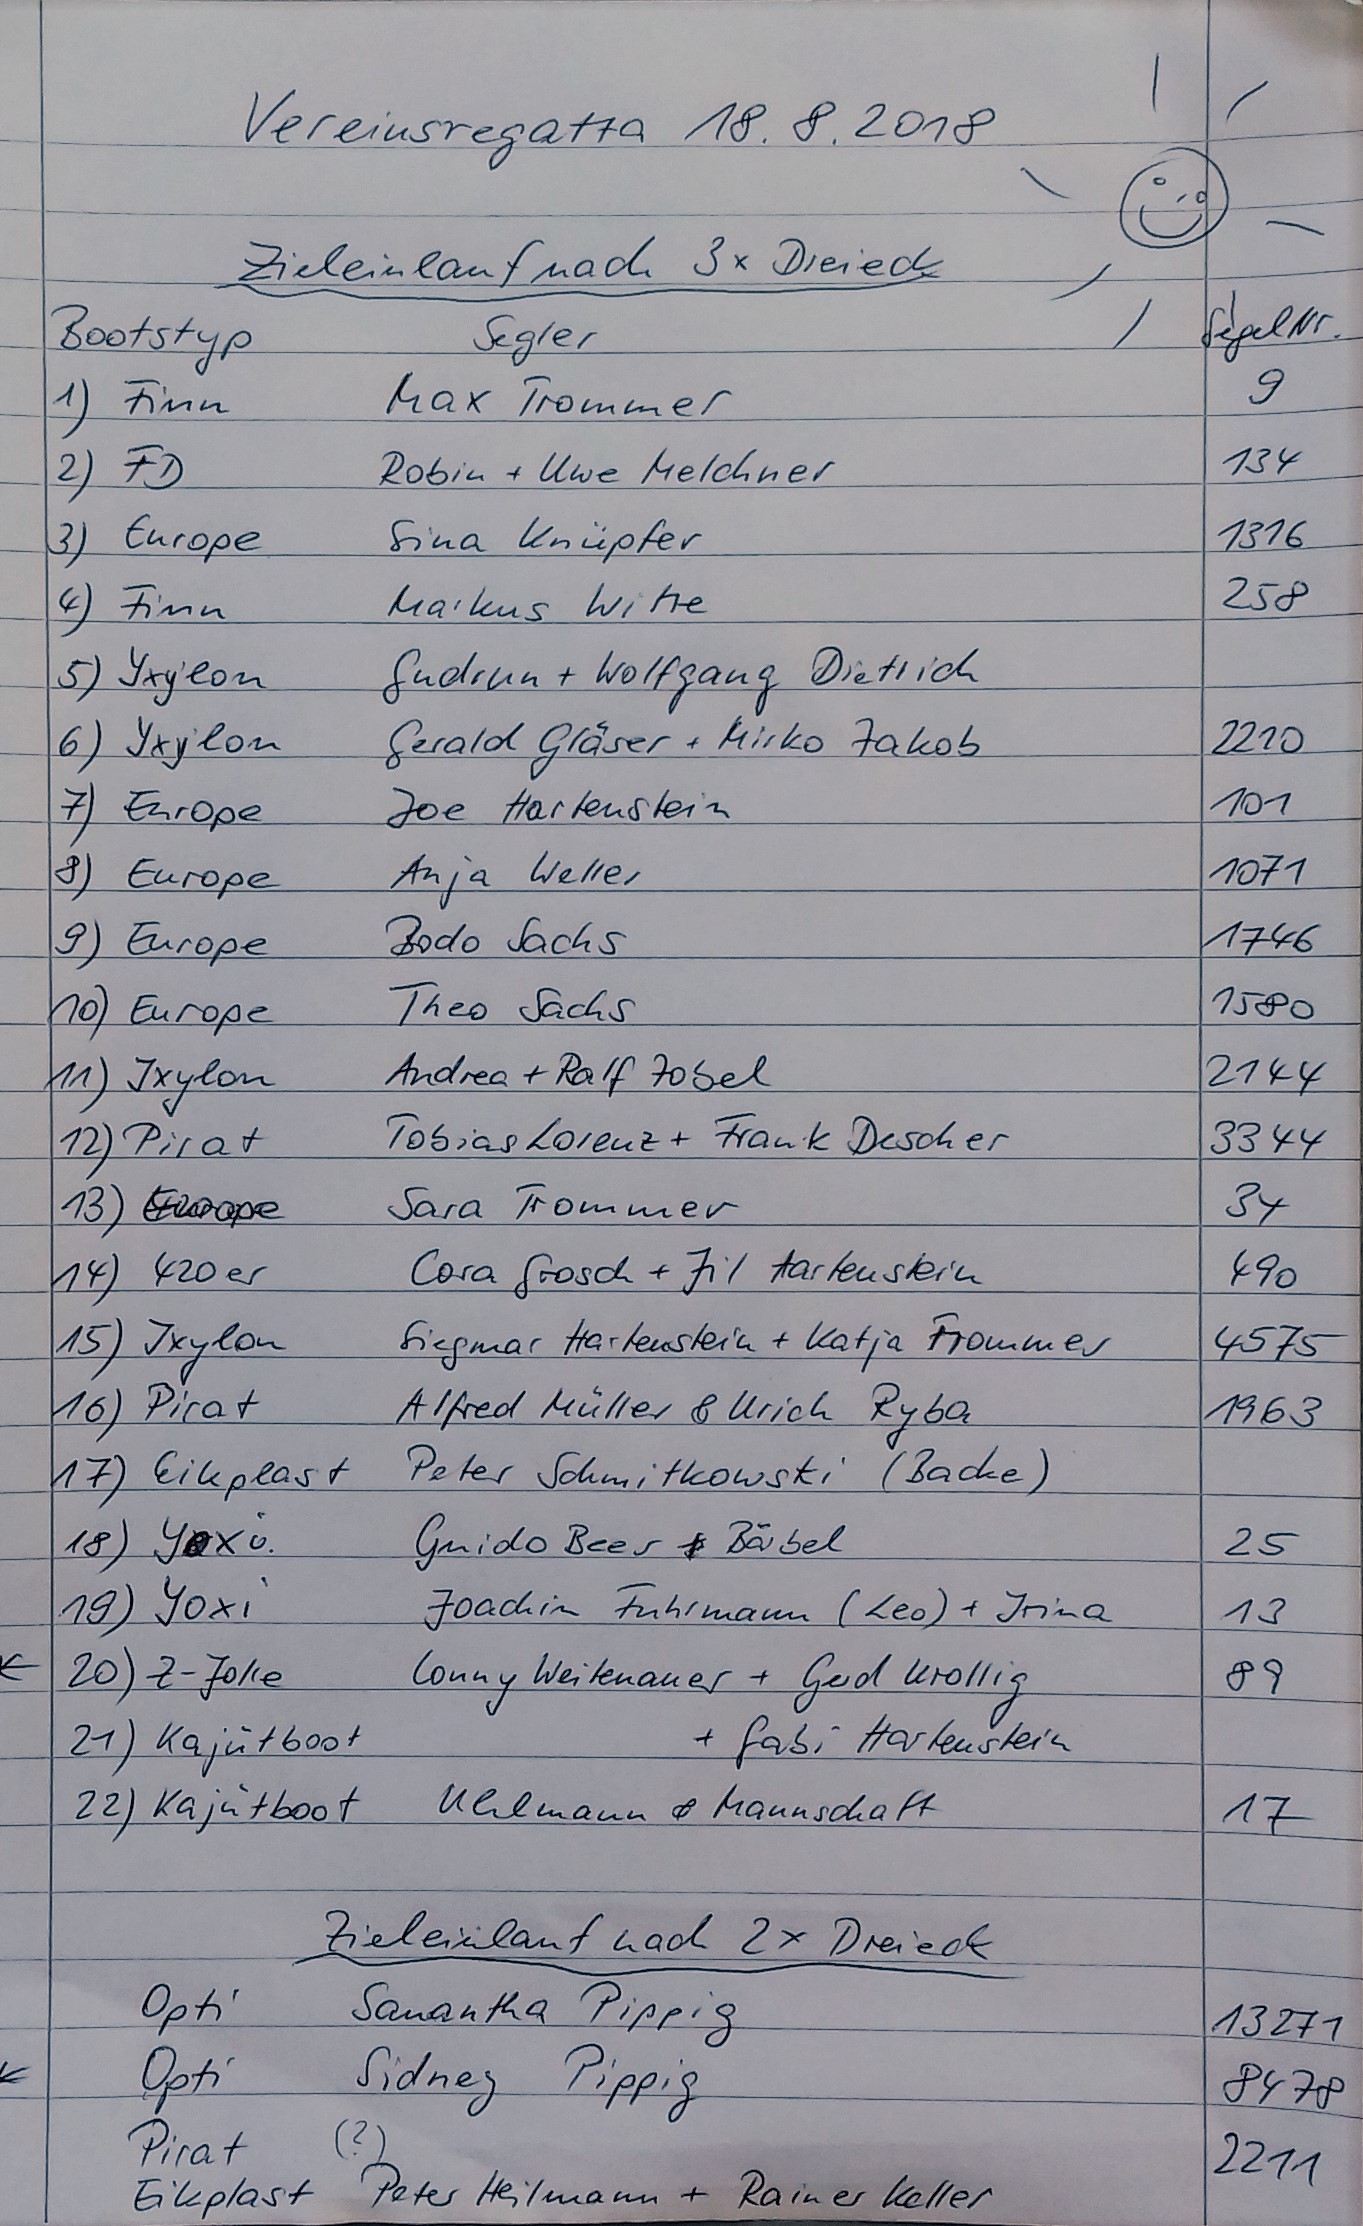 Vereinsregatta 18.8.2018
Zieleinlauf nach 3x Dreieck
Bootstyp Segler Segel Nr.
1) Finn Max Trommer 9
2) FD Robin + Uwe Melchner 134
3) Europe Sina Knüpfer 1316
4) Finn Markus Witte 258
5) Yxylon Gudrun + Wolfgang Dietrich
6) Yxylon Gerald Gläser + Mirko Jakob 2210
7) Europe Joe Hartenstein 101
8) Europe Anja Weller 1071
9) Europe Bodo Sachs 1746
10) Europe Theo Sachs 1580
11) Ixylon Andrea + Ralf Zobel 2144
12) Pirat Tobias Lorenz + Frank Descher 3344
13) Europe Sara Trommer 34
14) 420er Cora Grosch + Jil Hartenstein 490
15) Ixylon Siegmar Hartenstein + Katja Trommer 4575
16) Pirat Alfred Müller & Urich Ryba 1963
17) Eikplast Peter Schmitkowski (Backe)
18) Yoxi. Guido Beer & Bärbel 25
19) Yoxi Joachim Fuhrmann (Leo) + Irina 13
20) Z-Jolle Conny Weitenauer + Gerd Krollig 89
21) Kajütboot + Gabi Hartenstein
22) Kajütboot Uhlmann & Mannschaft 17
Zieleinlauf nach 2x Dreieck
Opti Samantha Pippig 13271
Opti Sidney Pippig 8478
Pirat (?) 2211
Eikplast Peter Heilmann + Rainer Keller